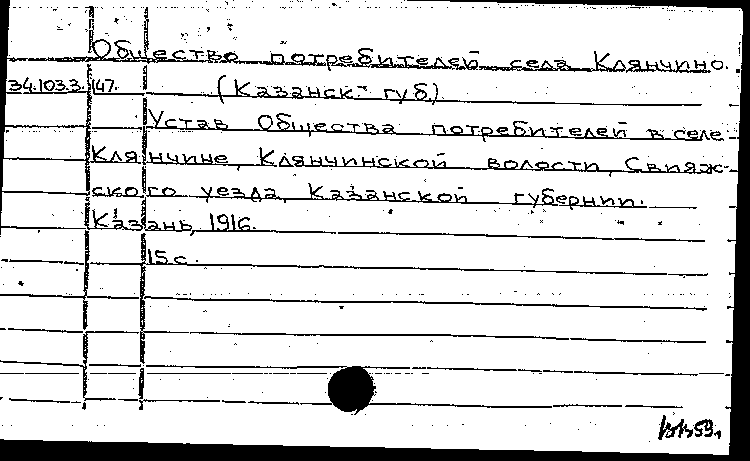 Общество потребителей села Клянчино.
34.103.3.147. (Казанск- губ.)
Устав Общества потребителей в селе
Клянчине, Клянчинской волости, Свияж-
ского уезда, Казанской губернии.
Казань, 1916.
15 с.